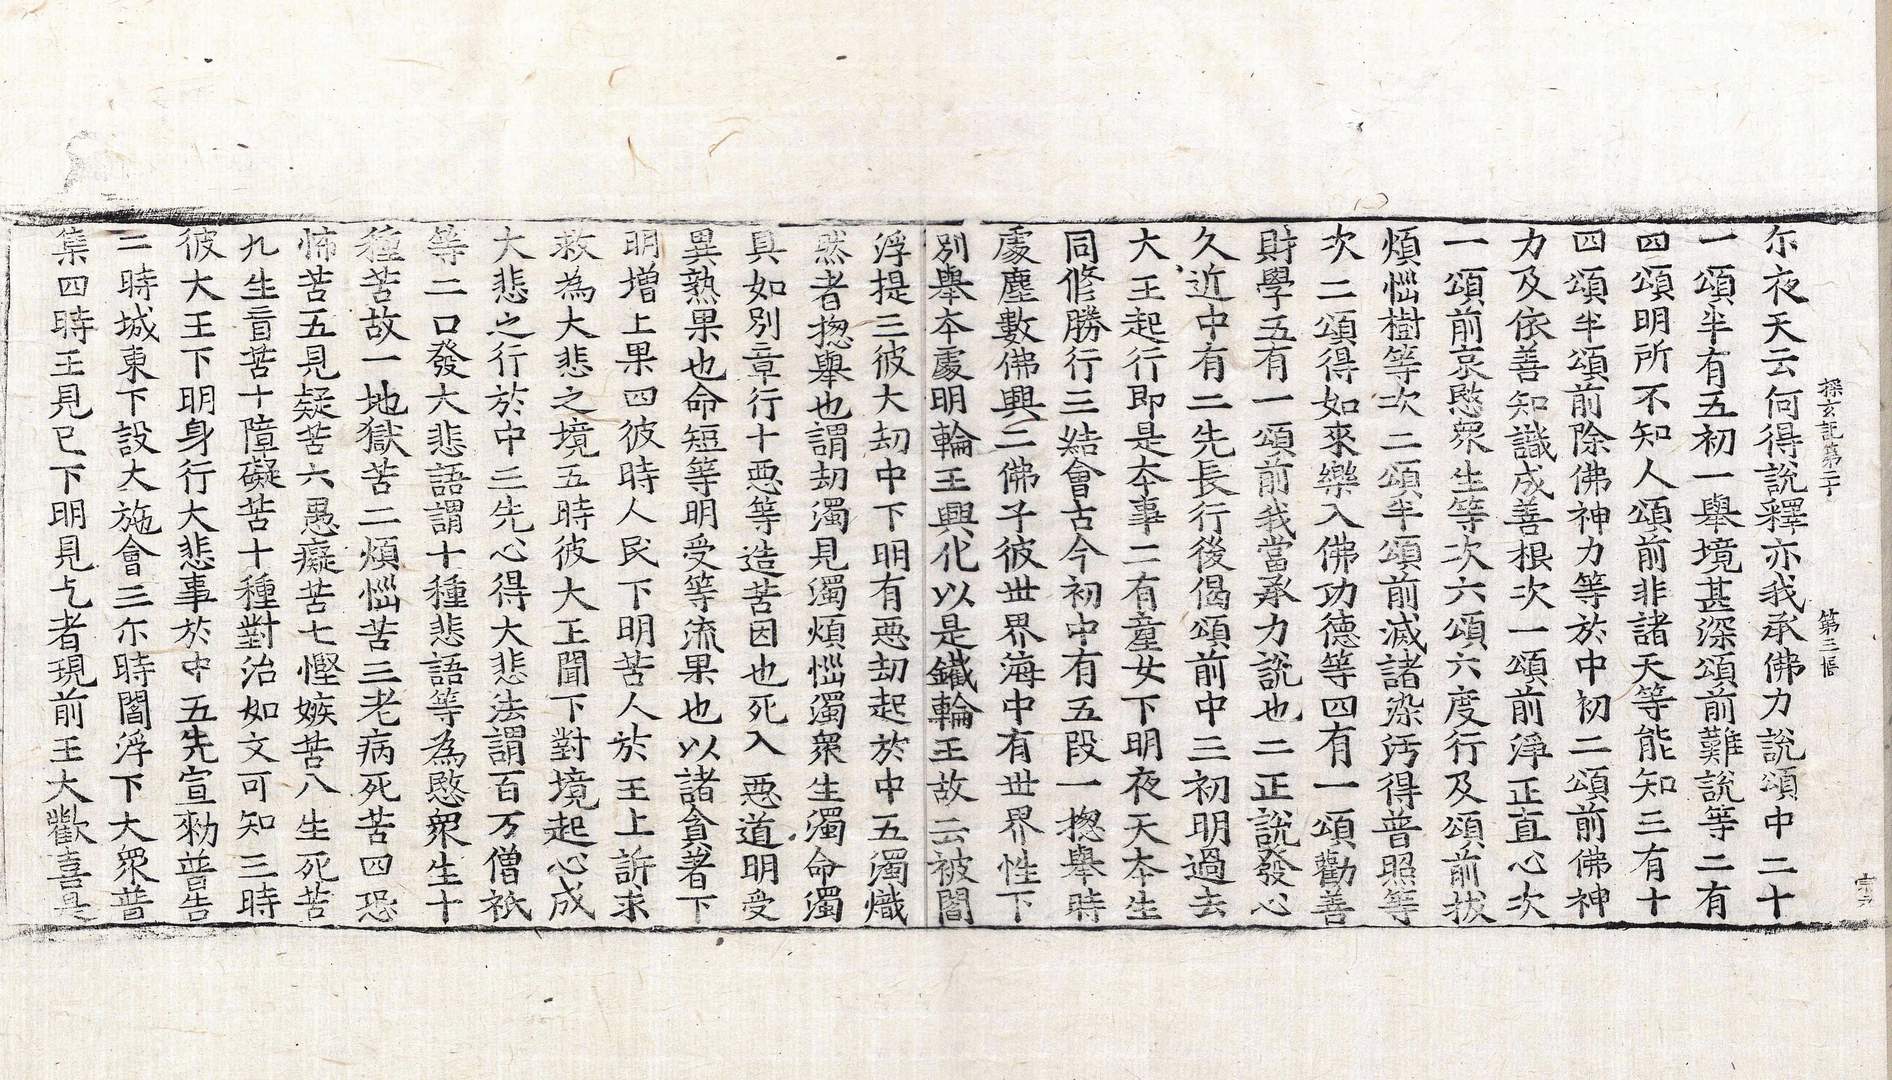 探玄記第二十 第三幅 宗六
尔夜天云何得說釋亦我承佛力說頌中二十
一頌半有五初一舉境甚深頌前難說等二有
四頌明所不知人頌前非諸天等能知三有十
四頌半頌前除佛神力等於中初二頌前佛神
力及依善知識成善根次一頌前淨正直心次
一頌前哀愍眾生等次六頌六度行及頌前拔
煩惱樹等次二頌半頌前滅諸染汚得普照等
次二頌得如來樂入佛功德等四有一頌勸善
財學五有一頌前我當承力說也二正說發心
久近中有二先長行後偈頌前中三初明過去
大王起行即是本事二有童女下明夜天本生
同修勝行三結會古今初中有五段一揔舉時
處塵數佛興二佛子彼世界海中有世界性下
別舉本處明輪王興化以是鐵輪王故云被閻
浮提三彼大劫中下明有惡劫起於中五濁熾
然者揔舉也謂劫濁見濁煩惱濁眾生濁命濁
具如別章行十惡等造苦因也死入惡道明受
異熟果也命短等明受等流果也以諸貪著下
明增上果四彼時人民下明苦人於王上訴求
救為大悲之境五時彼大王聞下對境起心成
大悲之行於中三先心得大悲法謂百万僧祇
等二口發大悲語謂十種悲語等為愍眾生十
種苦故一地獄苦二煩惱苦三老病死苦四恐
怖苦五見疑苦六愚癡苦七慳嫉苦八生死苦
九生盲苦十障礙苦十種對治如文可知三時
彼大王下明身行大悲事於中五先宣勑普告
二時城東下設大施會三尔時閻浮下大眾普
集四時王見已下明見乞者現前王大歡喜是